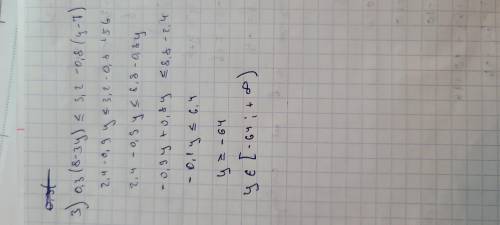 3) 0,3(8-3y) ≤ 3,2 -0,8(y-7)
2,4-0,9y ≤ 3,2-0,8 +5,6
2,4 -0,9y ≤ 8,8-0,8y
-0,9y+0,8y ≤ 8,8-2,4
-0,1y ≤ 6,4
y ≥ -64
y ∈ [-64; +∞)